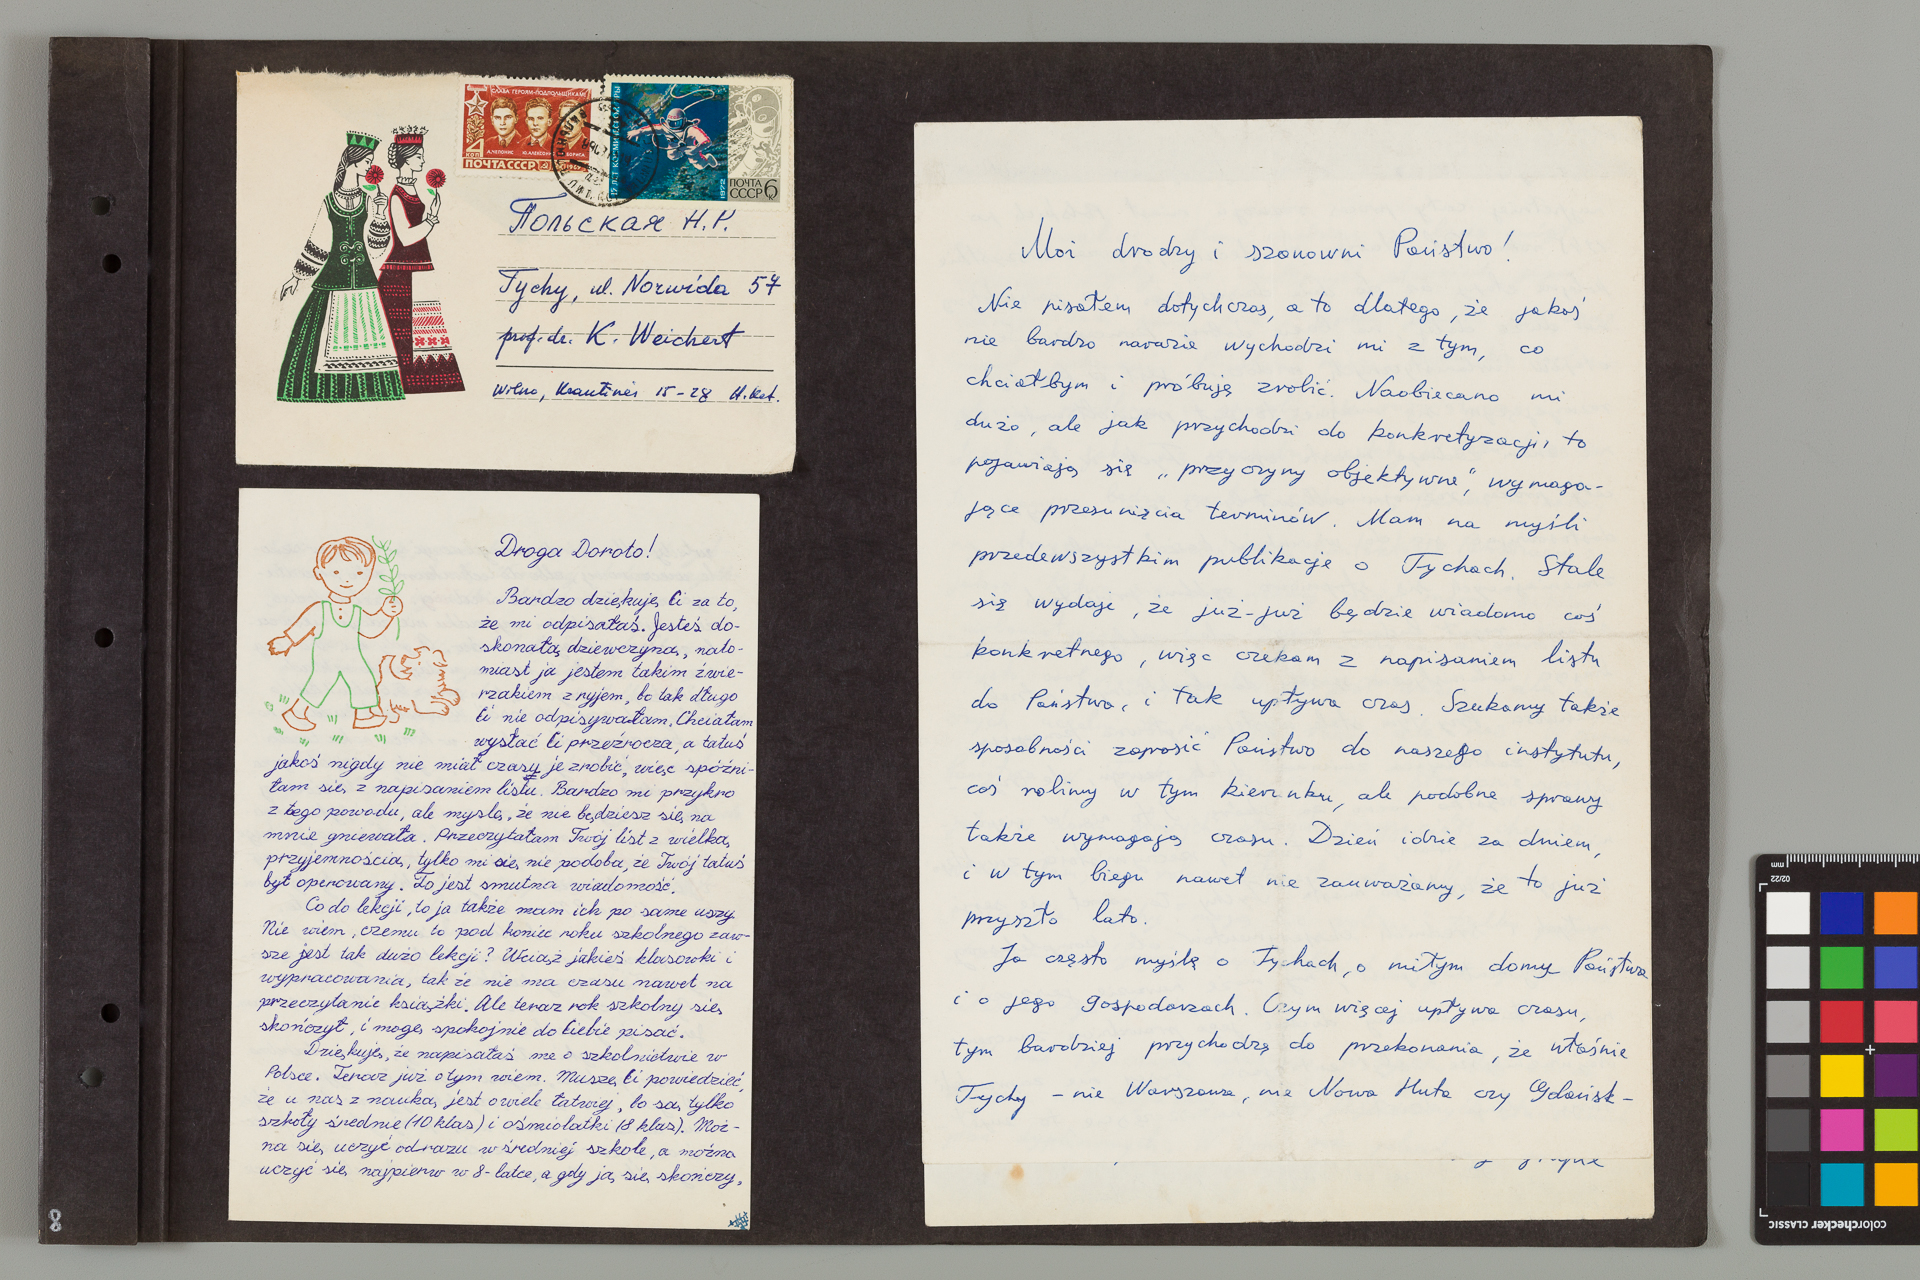 СЛАВА ГЕРОЯМ-ПОДПОЛЬЩИКАМ!
4 коп
ПОЧТА СССР
15 ЛЕТ КОСМИЧЕСКОЙ ЭРЫ
1972
ПОЧТА
СССР 6
Польская Н.Р.
Tychy, ul. Norwida 57
prof. dr. K. Weichert
Wilno, 15-28
Droga Doroto!
Bardzo dziękuję Ci za to,
że mi odpisałaś. Jesteś do-
skonałą dziewczyną, nato-
miast ja jestem takim zwie-
rzakiem z ryjem, bo tak długo
Ci nie odpisywałam. Chciałam
wysłać Ci przeźrocza, a tatuś
jakoś nigdy nie miał czasu je zrobić, więc spóźni-
łam się z napisaniem listu. Bardzo mi przykro
z tego powodu, ale myślę, że nie będziesz się na
mnie gniewała. Przeczytałam Twój list z wielką
przyjemnością, tylko mi się nie podoba, że Twój tatuś
był operowany. To jest smutna wiadomość.
Co do lekcji, to ja także mam ich po same uszy.
Nie wiem, czemu to pod koniec roku szkolnego zaw-
sze jest tak dużo lekcji? Wciąż jakieś klasówki i
wypracowania, tak że nie ma czasu nawet na
przeczytanie książki. Ale teraz rok szkolny się
skończył, i mogę spokojnie do Ciebie pisać.
Dziękuję, że napisałaś me o szkolnictwie w
Polsce. Teraz już o tym wiem. Muszę Ci powiedzieć,
że u nas z nauką jest o wiele łatwiej, bo są tylko
szkoły średnie (10 klas) i ośmiolatki (8 klas). Moż-
na się uczyć odrazu w średniej szkole, a można
uczyć się najpierw w 8-latce, a gdy ją się skończy,
Moi drodzy i szanowni Państwo!
Nie pisałem dotychczas, a to dlatego, że jakoś
nie bardzo narazie wychodzi mi z tym, co
chciałbym i próbuję zrobić. Naobiecano mi
dużo, ale jak przychodzi do konkretyzacji, to
pojawiają się „przyczyny objektywne", wymaga-
jące przesunięcia terminów. Mam na myśli
przedewszystkim publikację o Tychach. Stale
się wydaje, że już-już będzie wiadomo coś
konkretnego, więc czekam z napisaniem listu
do Państwa, i tak upływa czas. Szukamy także
sposobności zaprosić Państwo do naszego instytutu,
coś robimy w tym kierunku, ale podobne sprawy
także wymagają czasu. Dzień idzie za dniem,
i w tym biegu nawet nie zauważamy, że to już
przyszło lato.
Ja często myślę o Tychach, o miłym domu Państwa
i o jego gospodarzach. Czym więcej upływa czasu,
tym bardziej przychodzę do przekonania, że właśnie
Tychy – nie Warszawa, nie Nowa Huta czy Gdańsk –
8
mm
02/22
colorchecker CLASSIC